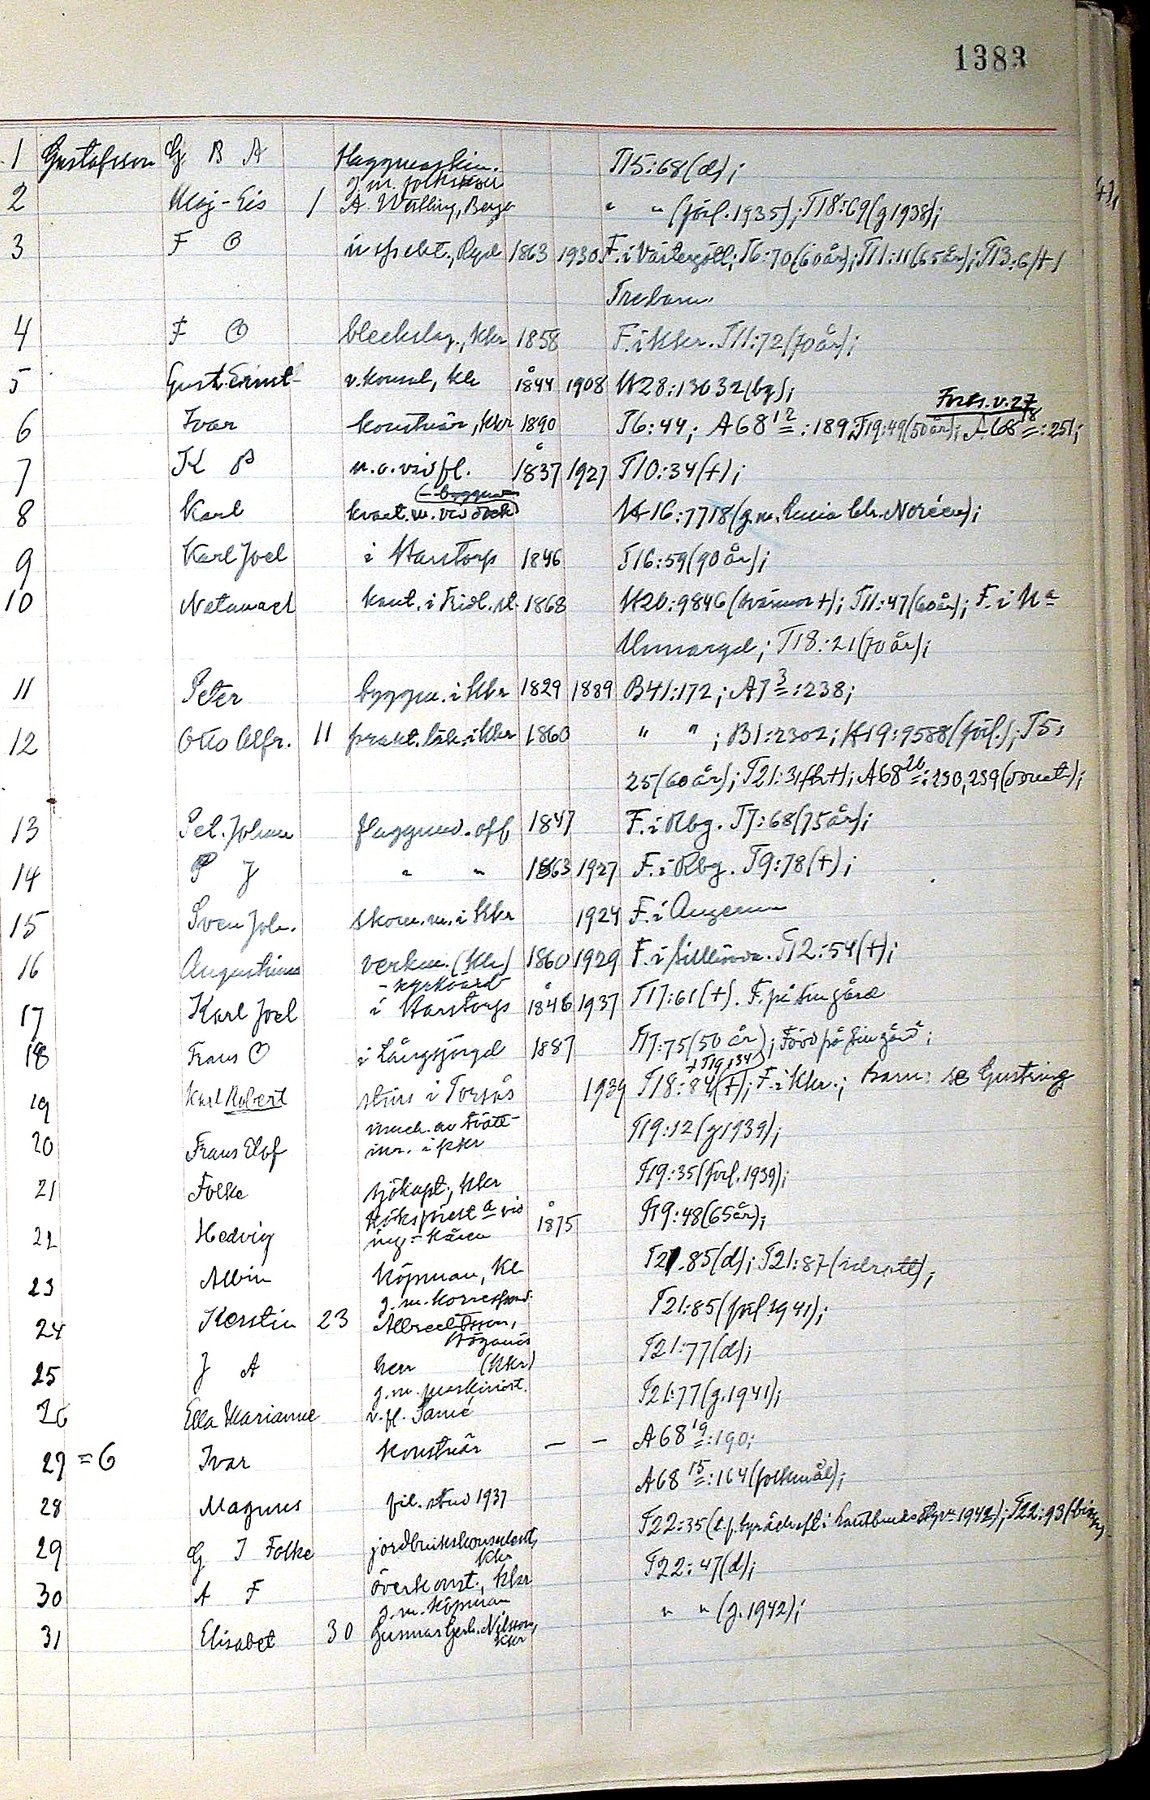 1383
1 Gustafsson G B A Flaggmaskin. T15:68(d);
g.m. folkskoll
2 Maj-Lis 1 A. Walling, Berga " " (förl. 1935); T18:69(g 1938);
3 F O inspekt., Ryd 1863 1930 F. i Västergötl; T6:70(60 år); T11:11(65 år); T13:6(+)
Tre barn.
4 F O bleckslag., Kkr 1858 F. i Kkr. T11:72(70 år);
5 Gust. Ernst v. konsul, Kk 1844 1908 K28:13032(bg);
Forts. v. 27
6 Ivar konstnär, Kkr 1890 T6:44; A68 12:189; T19:49(50 år); A68 18:251;
7 K P u.o. vid fl. 1837 1927 T10:34(+);
(-byggm
8 Karl kvart.m. vid K16:7718(g.m. Lucia Noréen);
9 Karl Joel i Harstorp 1846 T16:59(90 år);
10 Natanael kant. i Fridl. st. 1868 K20:9846(svärmor +); T11:47(60 år); F. i
T18:21(70 år);
11 Peter byggm. i Kkr 1829 1889 B41:172; A7 3:238;
12 Otto Alfr. 11 prakt. läk. i Kkr 1860 " " ; B1:2302; K19:9588(förl.); T5:
25(60 år); T21:31(h+); A68 20:230,239
13 Pet. Johan flaggund. off 1847 F. i Rbg. T7:68(75 år);
14 P J " " 1863 1927 F. i Rbg. T9:78(+);
15 Sven Joh. skom.m. i Kkr 1924 F. i Augerum
16 Augustinus verkm. (Kkr) 1860 1929 F. i Sillhövda. T12:54(+);
- kyrkvärd
17 Karl Joel i Harstorp 1846 1937 T17:61(+). F. på sin gård
18 Frans O i Långsjöryd 1887 T17:75(50 år); Född på sin gård;
+ T19:34
19 Karl Robert i Torsås 1939 T18:84(+); F. i Kkr.; barn: se Gustring
20 Frans Olof innch. av tvätt- T19:12(g 1939);
inr. i Kkr
21 Folke sjökapt., Kkr T19:35(förl. 1939);
22 Hedvig vid 1875 T19:48(65 år);
ing-kåren
23 Albin köpman, Kk T21:85(d); T21:87(idrott);
g.m. korrespond.
24 Kerstin 23 Albrechtsson, T21:85(förl 1941);
Höganäs
25 J A herr (Kkr) T21:77(d);
g.m. maskinist.
26 Ella Marianne v. fl. T21:77(g. 1941);
27 = 6 Ivar konstnär — — A68 19:190;
28 Magnus fil. stud 1937 A68 15:164(folkmål);
29 G I Folke jordbrukskonsulent, Kkr T22:35( i 1942); T22:93
30 A F överkonst., Kkr T22:47(d);
g.m. köpman
31 Elisabet 30 Gunnar Gerh. Nilsson, Kkr " " (g. 1942);